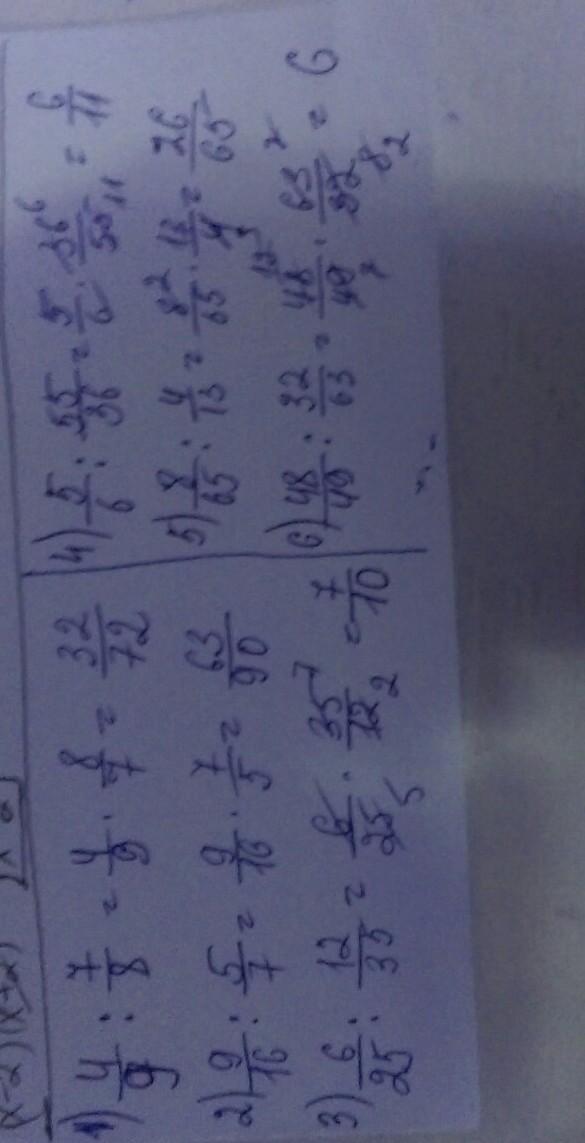 (x-2)(x+2)
1) 4/9 : 7/8 = 4/9 · 8/7 = 32/72
2) 9/16 : 5/7 = 9/16 · 7/5 = 63/90
3) 6/25 : 12/35 = 6/25 5 · 35 7/12 2 = 7/10
4) 5/6 : 55/36 = 5/6 · 36 6/55 11 = 6/11
5) 8/65 : 4/13 = 8 2/65 · 13/4 = 26/65
6) 48/49 : 32/63 = 48/49 7 · 63/32 8 2 = 6